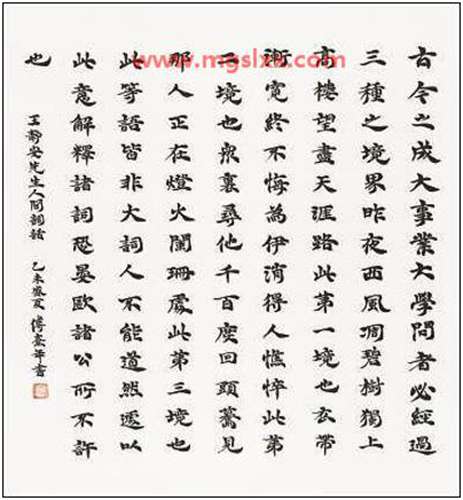 古今之成大事業大學問者必經過
三種之境界昨夜西風凋碧樹獨上
高樓望盡天涯路此第一境也衣帶
漸寬終不悔為伊消得人憔悴此第
二境也衆裏尋他千百度回頭驀見
那人正在燈火闌珊處此第三境也
此等語皆非大詞人不能道然遽以
此意解釋諸詞恐晏歐諸公所不許
也
王靜安先生人間詞話 乙未 夏 傅 書